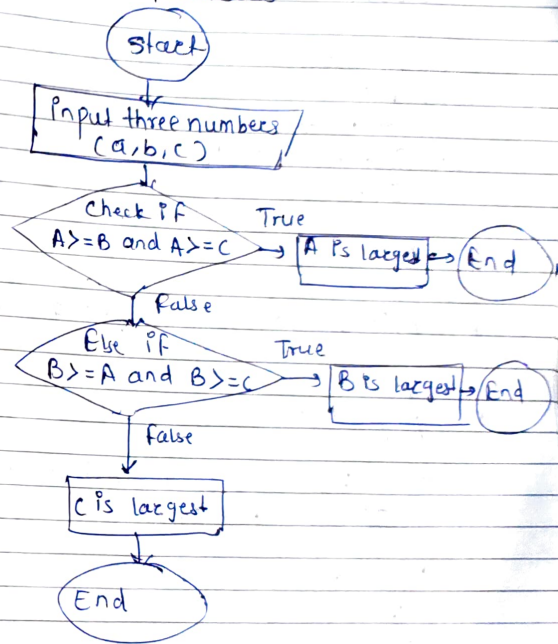 Start
Input three numbers
(a,b,c)
Check if
A>=B and A>=C
True
A is largest
End
False
Else if
B>=A and B>=C
True
B is largest
End
False
C is largest
End